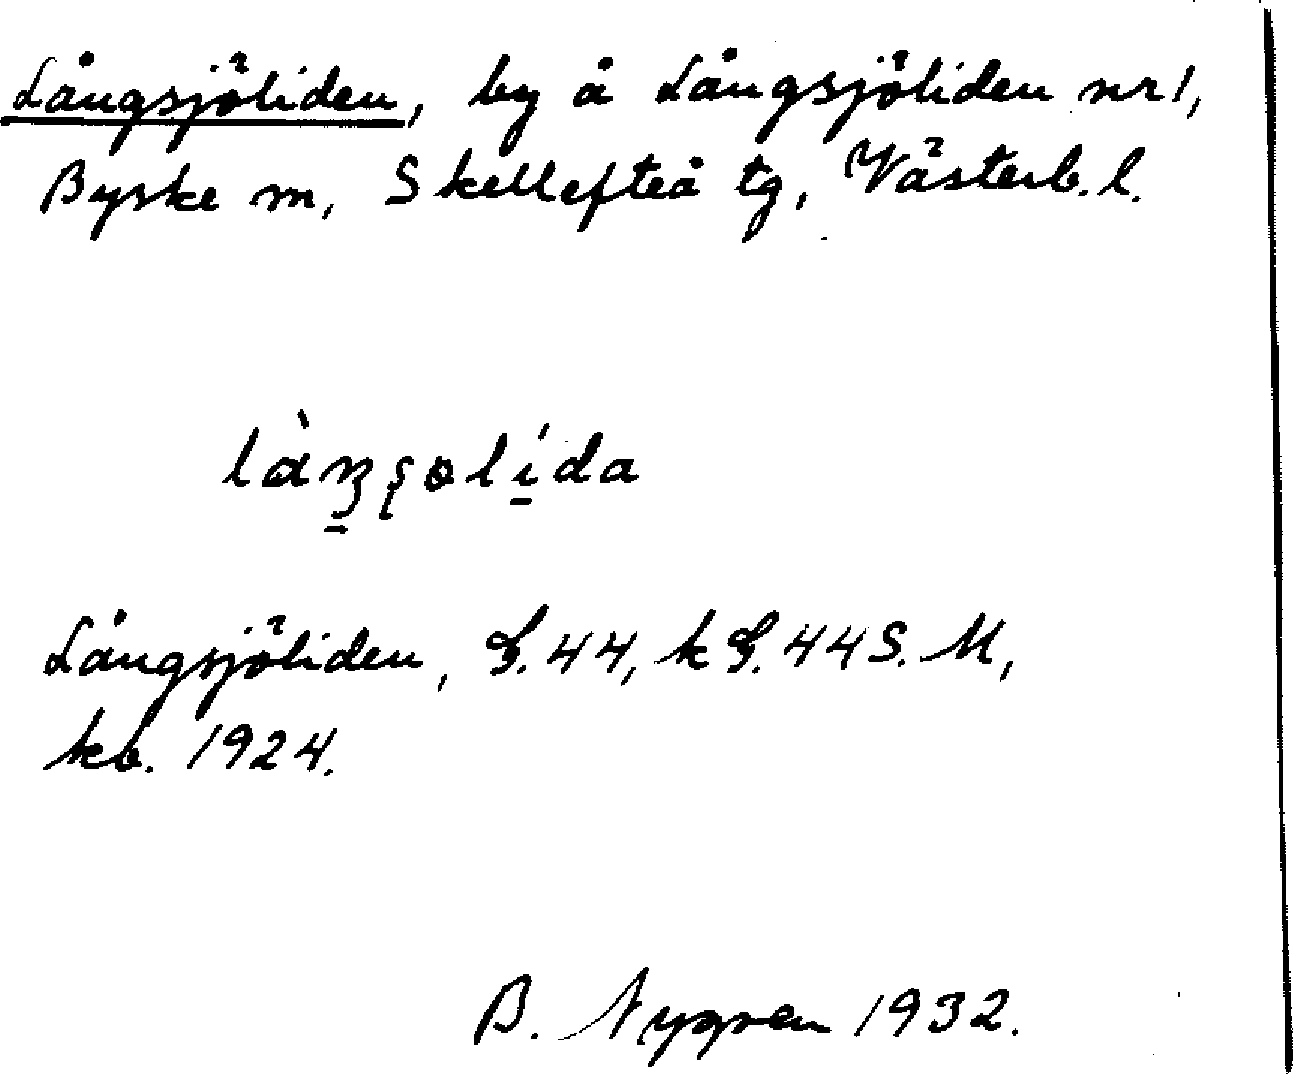 Långsjöliden, by å Långsjöliden nr 1,
Byske sn, Skellefteå tg, Västerb. l.
làŋʂolída
Långsjöliden, S. 44, k S. 44 S. M,
kb. 1924.
B. Nygren 1932.